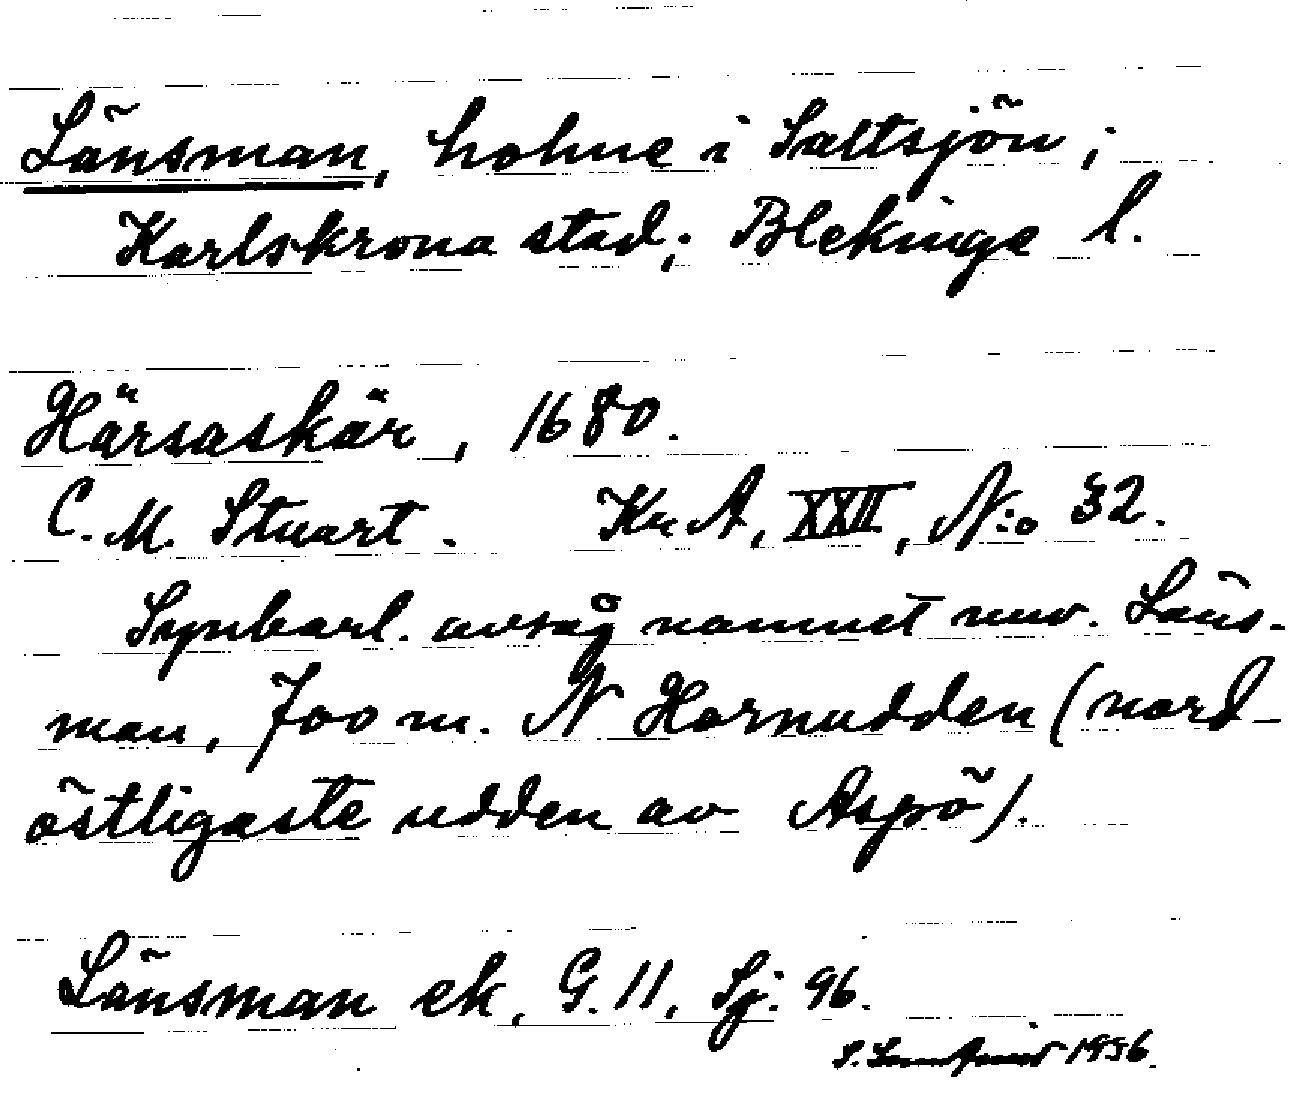 Länsman, holme i Saltsjön;
Karlskrona stad; Blekinge l.
Härsaskär, 1680.
C. M. Stuart. Kr. A, XXII, N:o 32.
Synbarl. avsåg namnet nuv. Läns-
man, 700 m. N Hornudden (nord-
östligaste udden av Aspö).
Länsman ek, G. 11, Sj. 96.
S. 1956.